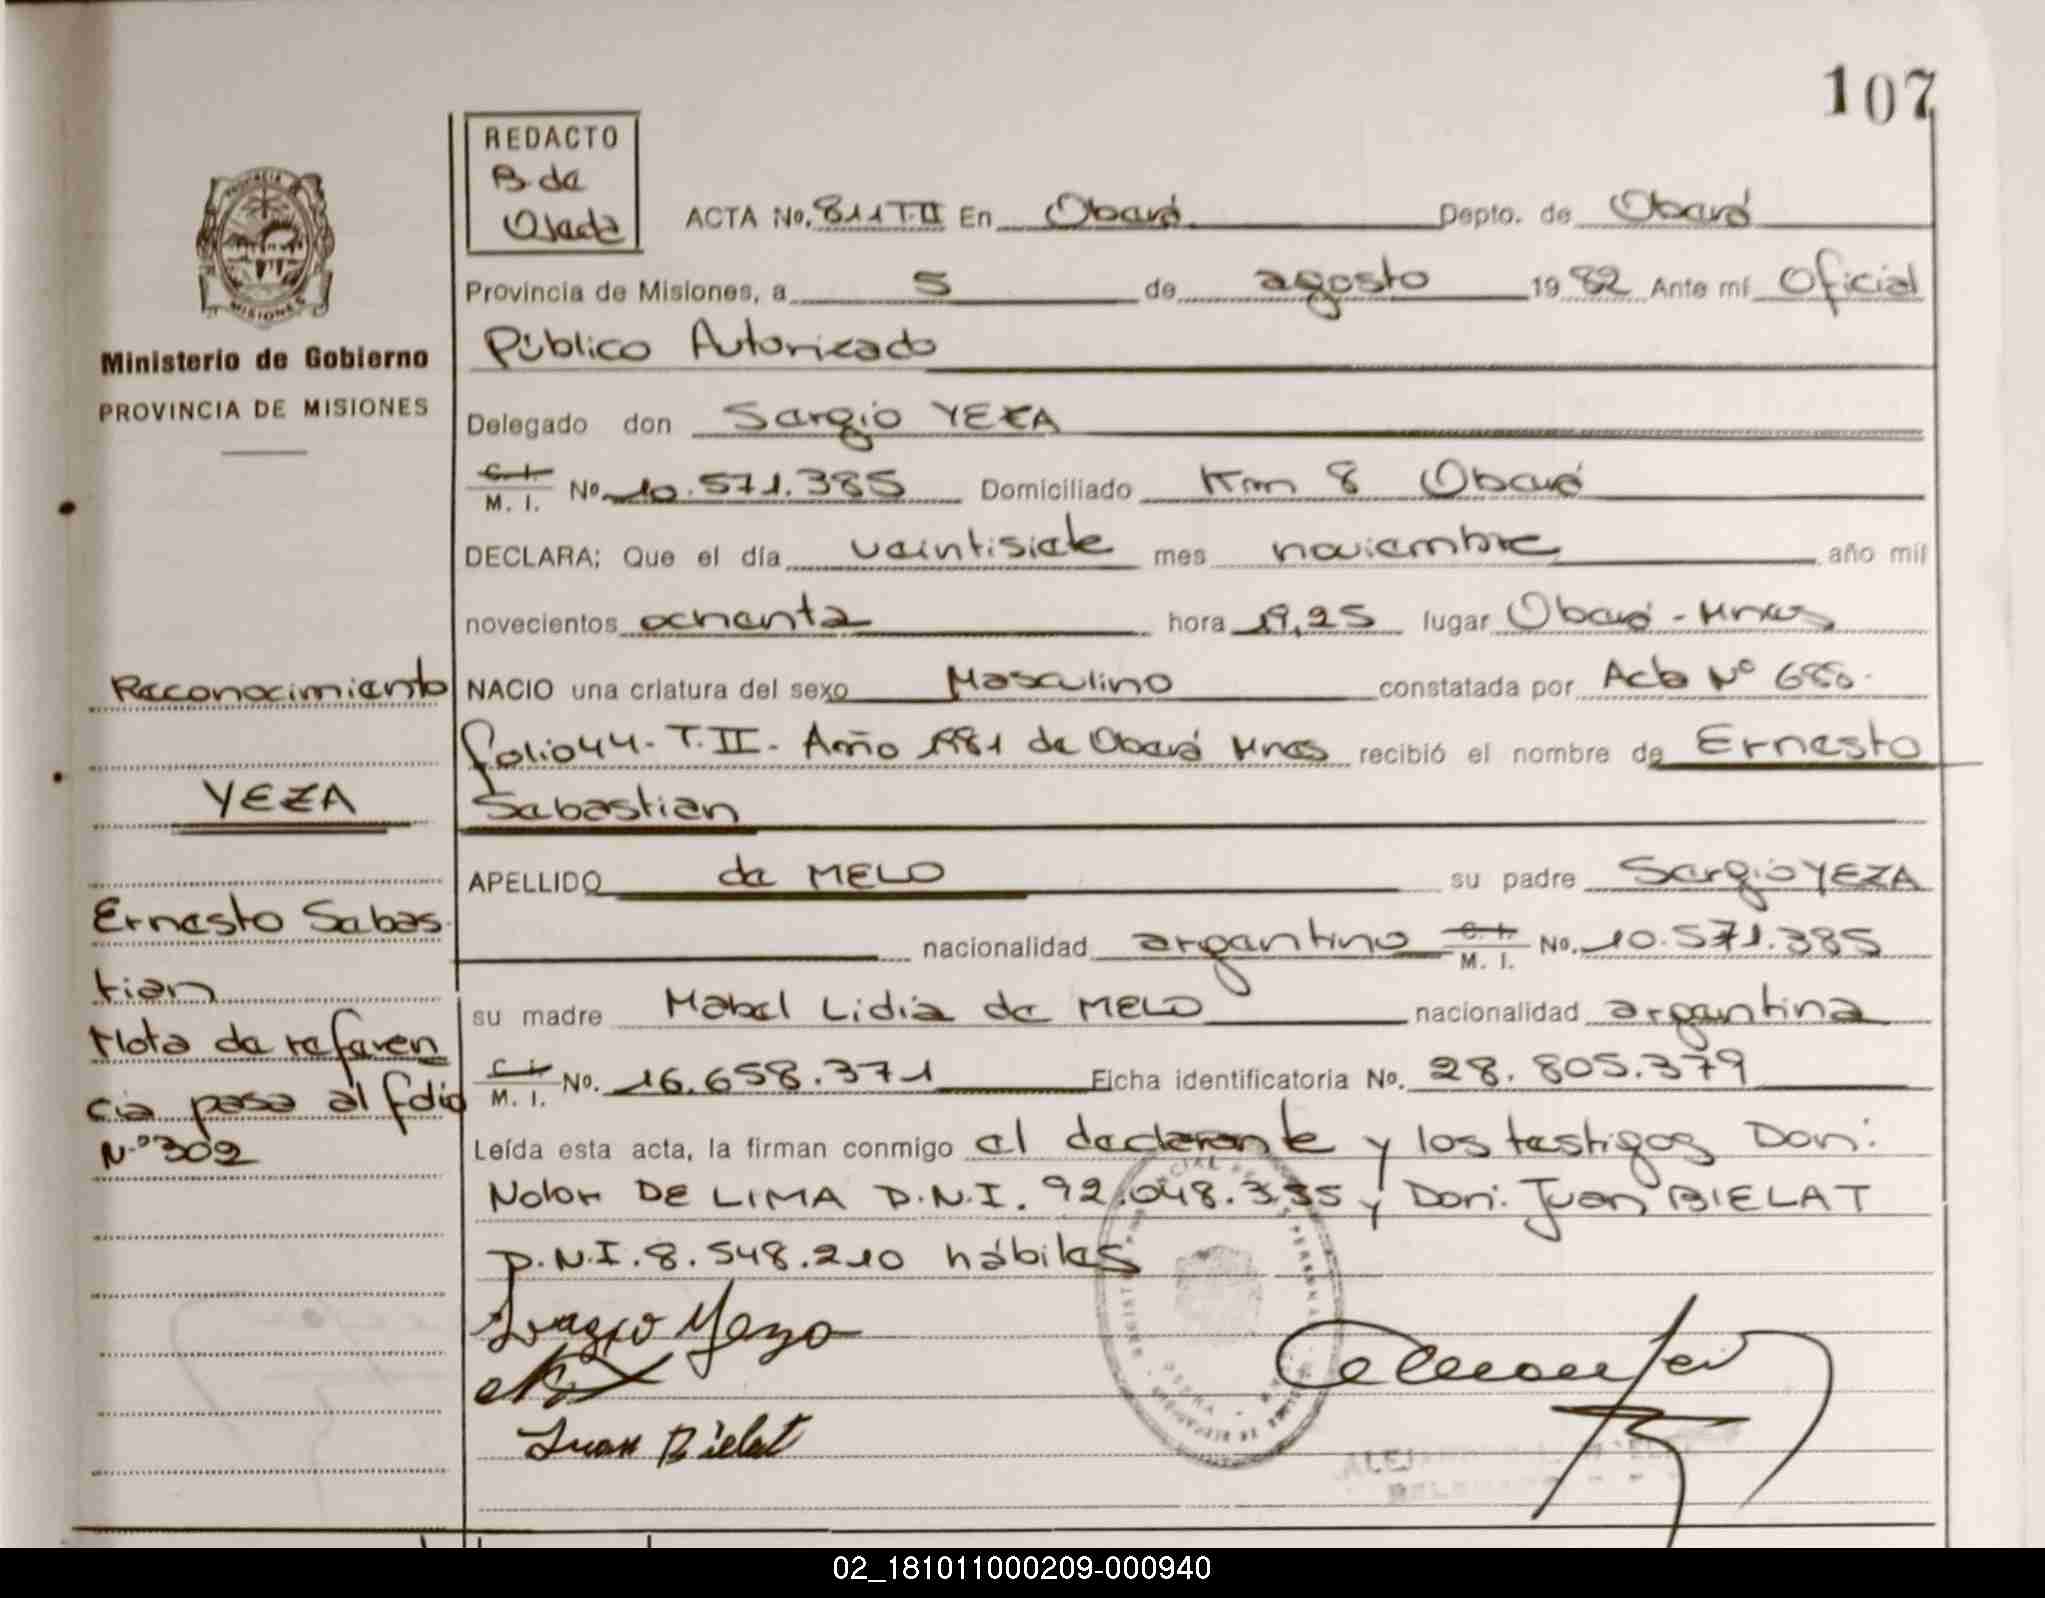 107
REDACTO
B. de
Olade
ACTA No. 811 T.II En Oberá Depto. de Oberá
Provincia de Misiones, a 5 de agosto 1982 Ante mí Oficial
Público Autorizado
Delegado don Sergio YEZA
C. I.
M. I. No 10.571.385 Domiciliado Km 8 Oberá
DECLARA; Que el día veintisiete mes noviembre año mil
novecientos ochenta hora 19,25 lugar Oberá - Mnes
NACIO una criatura del sexo Masculino constatada por Acta Nº 680.
folio 44 - T. II - Año 1981 de Oberá Mnes recibió el nombre de Ernesto
Sebastian
APELLIDO de MELO su padre Sergio YEZA
nacionalidad argentino C. I.
M. I. No. 10.571.385
su madre Mabel Lidia de MELO nacionalidad argentina
C. I.
M. I. No. 16.658.371 Ficha identificatoria No. 28.805.379
Leída esta acta, la firman conmigo el declarante y los testigos Don:
Nolor DE LIMA D.N.I. 92.048.335 y Don: Juan BIELAT
D.N.I. 8.548.210 hábiles
Sergio Yeza
Juan Bielat
PROVINCIA
MISIONES
Ministerio de Gobierno
PROVINCIA DE MISIONES
Reconocimiento
YEZA
Ernesto Sebas-
tian
Nota de referen
cia pasa al folio
N.º 302
02_181011000209-000940